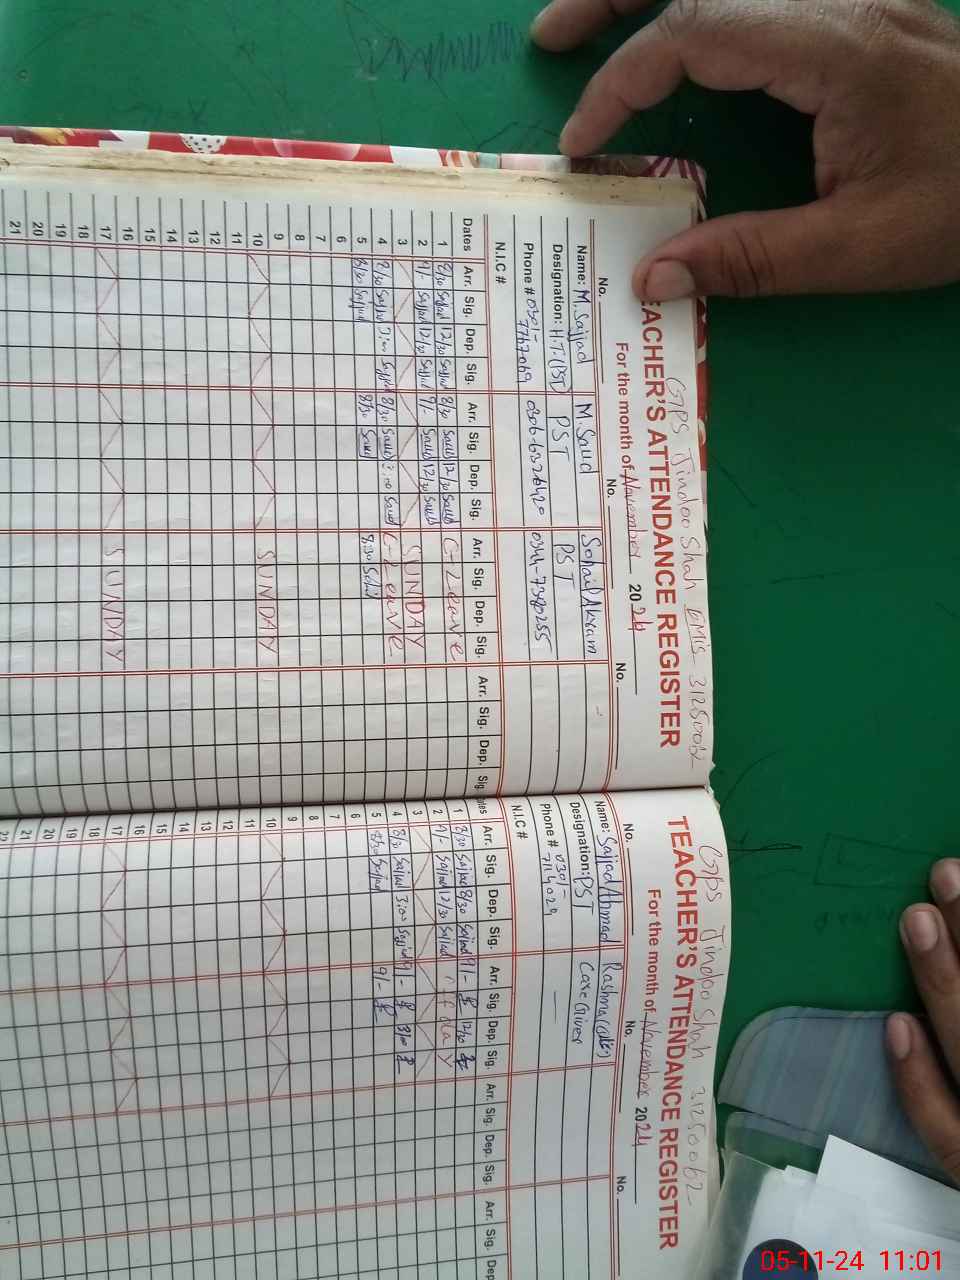 GPS Jindoo Shah EMIS 31250062
TEACHER'S ATTENDANCE REGISTER
For the month of November 2024
No. No. No.
Name: M. Sajjad M. Saud Sohail Akram
Designation: H.T.(PST) PST PST
Phone # 0301-7767069 0306-6326420 0344-7380255
N.I.C #
Dates Arr. Sig. Dep. Sig. Arr. Sig. Dep. Sig. Arr. Sig. Dep. Sig. Arr. Sig. Dep. Sig.
1 8/30 Sajjad 12/30 Sajjad 8/30 Saud 12/30 Saud C-Leave
2 9/- Sajjad 12/30 Sajjad 9/- Saud 12/30 Saud
3 SUNDAY
4 8/30 Sajjad 3:00 Sajjad 8/30 Saud 3:00 Saud C-Leave
5 8/30 Sajjad 8/30 Saud 8:30 Sohail
6
7
8
9
10 SUNDAY
11
12
13
14
15
16
17 SUNDAY
18
19
20
21
GPS Jindoo Shah 31250062
TEACHER'S ATTENDANCE REGISTER
For the month of November 2024
No. No. No.
Name: Sajjad Ahmad Rashma
Designation: PST Care Giver
Phone # 0301-7114029 —
N.I.C #
Arr. Sig. Dep. Sig. Arr. Sig. Dep. Sig. Arr. Sig. Dep. Sig. Arr. Sig. Dep.
1 8/30 Sajjad 8/30 Sajjad 9/- 12/30
2 9/- Sajjad 12/30 Sajjad off day
3
4 8/30 Sajjad 3:00 Sajjad 9/- 3/00
5 8/30 Sajjad 9/-
6
7
8
9
10
11
12
13
14
15
16
17
18
19
20
21
22
05-11-24 11:01